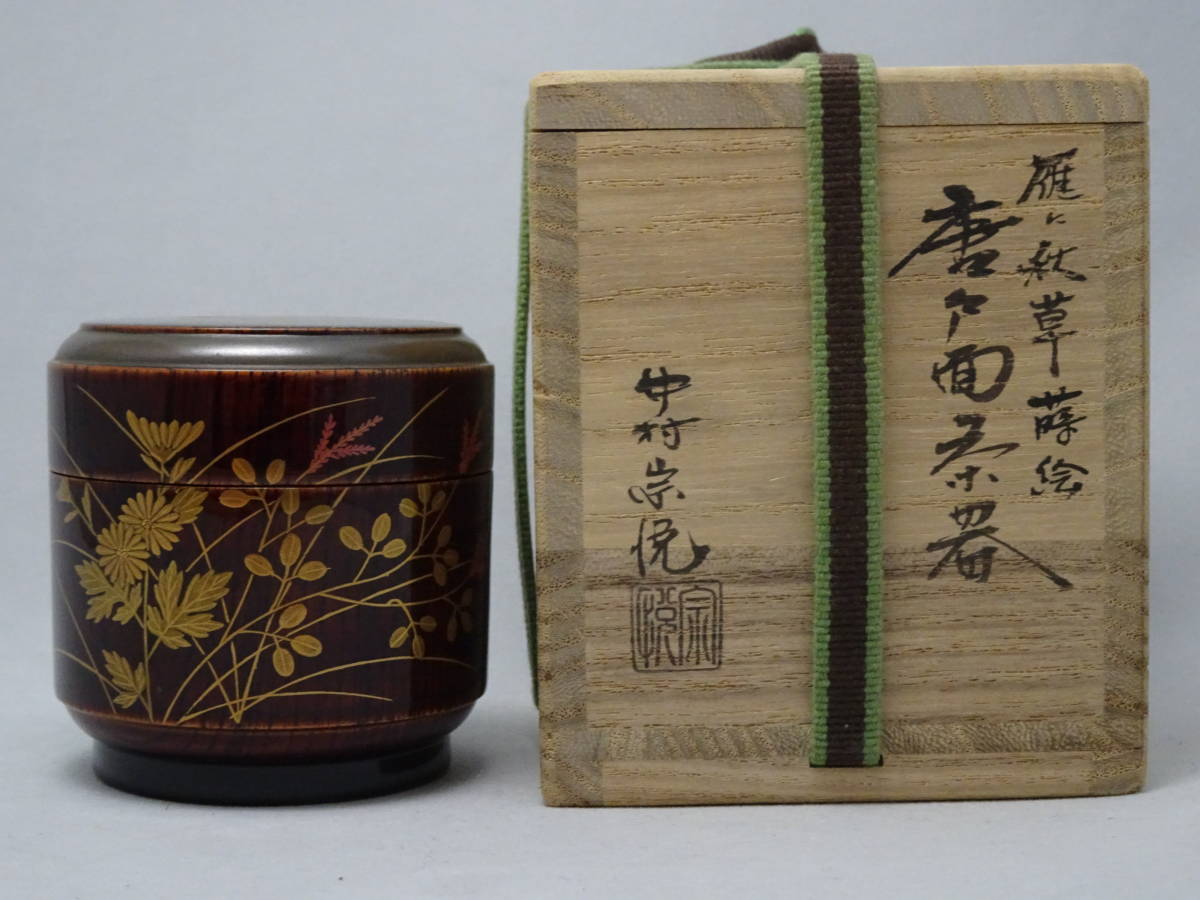 雁ニ秋草蒔絵
唐戸面茶器
中村宗悦
宗悦